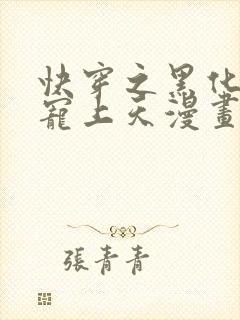 快穿之黑化
寵上天漫畫
張青青